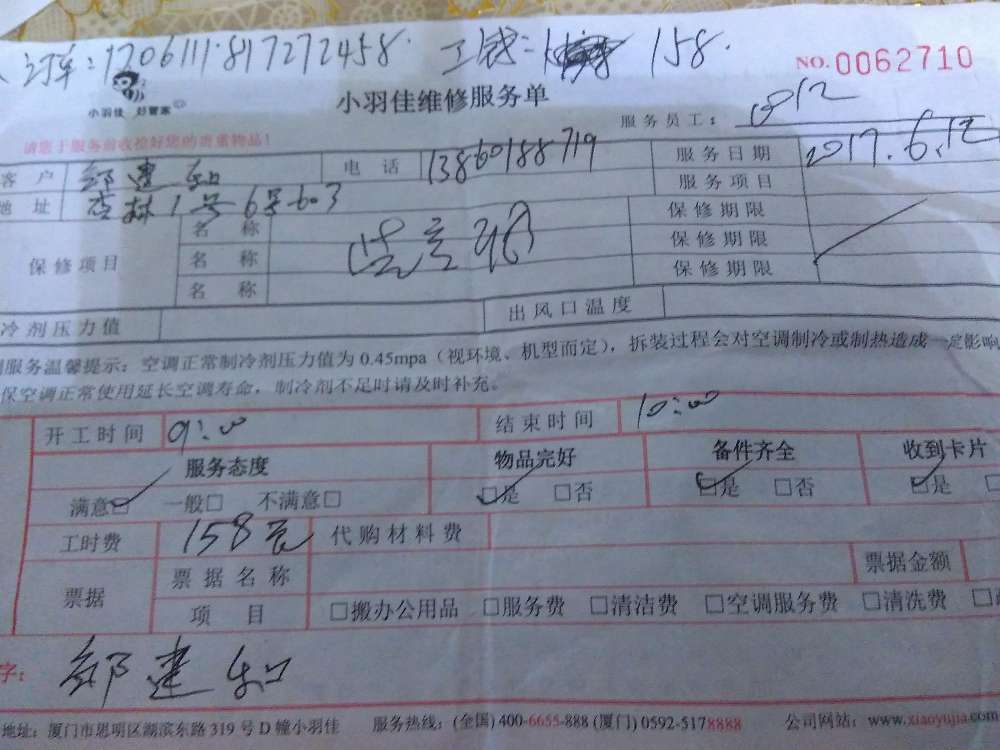 订车:1706111817272458. 工钱: 158.
小羽佳 好管家
NO.0062710
小羽佳维修服务单
服务员工:
请您于服务前收捡好您的贵重物品!
客户 邹建 电话 13860188719 服务日期 2017.6.12
地址 杏林1号6号603 服务项目
保修项目 名称 保修期限
名称 保修期限
名称 保修期限
冷剂压力值 出风口温度
服务温馨提示:空调正常制冷剂压力值为0.45mpa(视环境、机型而定),拆装过程会对空调制冷或制热造成一定影响
保空调正常使用延长空调寿命,制冷剂不足时请及时补充。
开工时间 9:00 结束时间 10:00
服务态度 物品完好 备件齐全 收到卡片
满意☑ 一般□ 不满意□ ☑是 □否 ☑是 □否 ☑是 □
工时费 158元 代购材料费
票据 票据名称 票据金额
项目 □搬办公用品 □服务费 □清洁费 □空调服务费 □清洗费 □
字: 邹建
地址:厦门市思明区湖滨东路319号D幢小羽佳 服务热线:(全国)400-6655-888(厦门)0592-5178888 公司网站:www.xiaoyujia.com